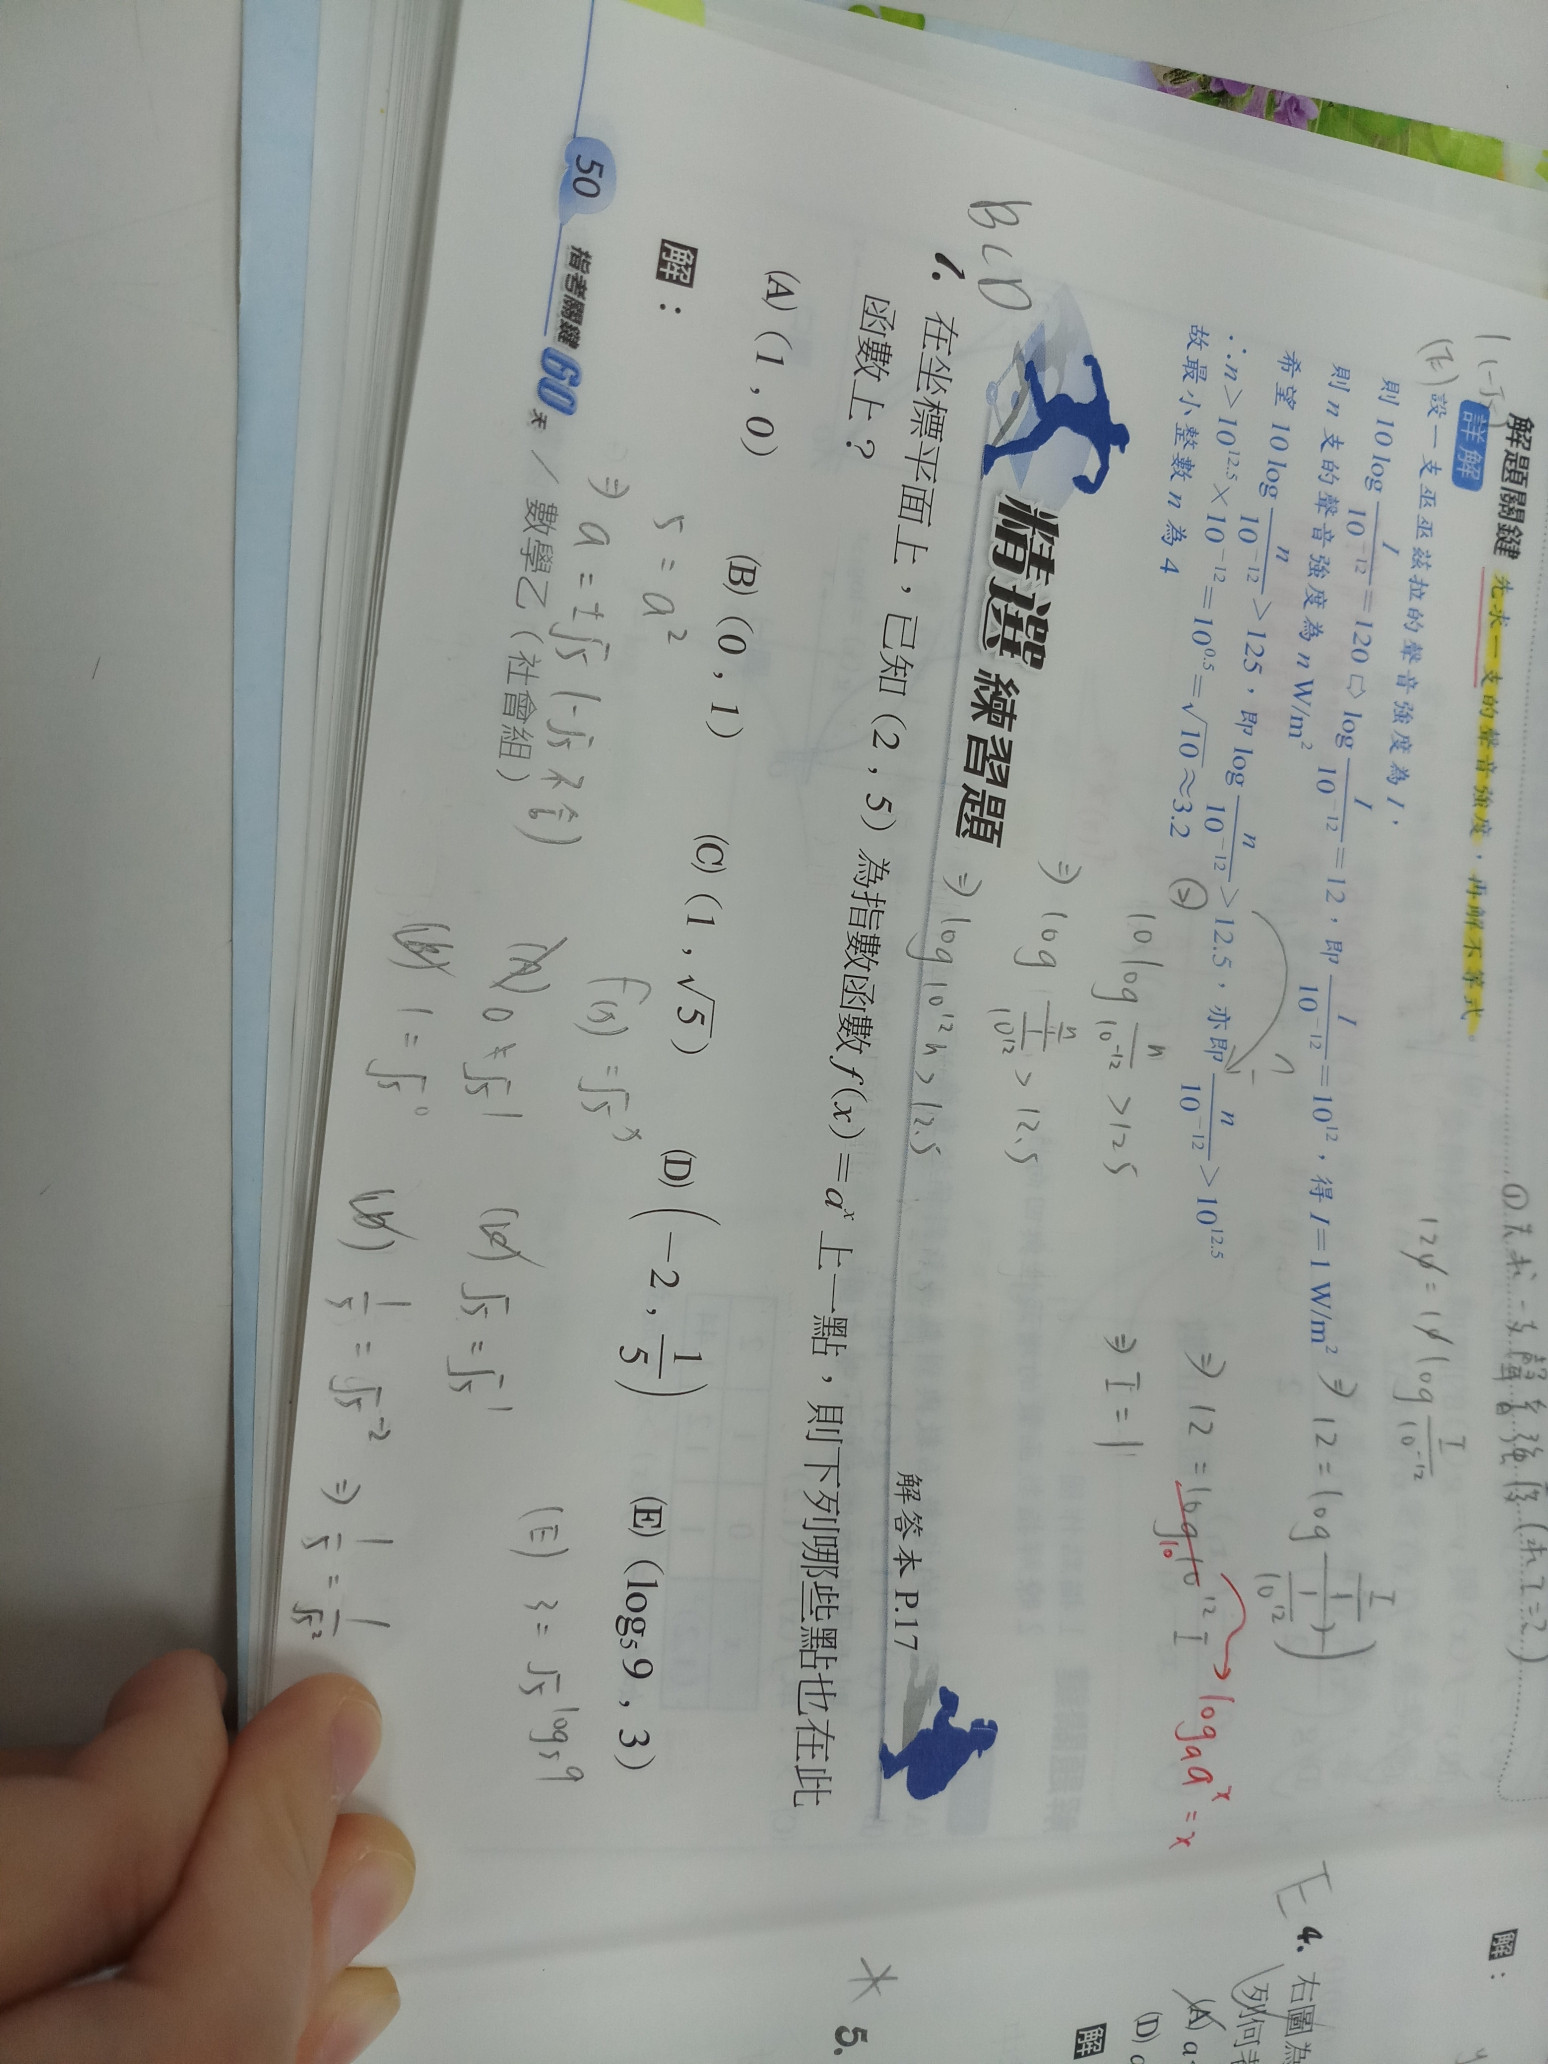 解題關鍵 先求一支的聲音強度，再解不等式。
詳解
設一支巫巫茲拉的聲音強度為 I，
則 10 log I/10⁻¹² = 120 ⇨ log I/10⁻¹² = 12，即 I/10⁻¹² = 10¹²，得 I = 1 W/m²
則 n 支的聲音強度為 n W/m²
希望 10 log n/10⁻¹² > 125，即 log n/10⁻¹² > 12.5，亦即 n/10⁻¹² > 10^12.5
∴ n > 10^12.5 × 10⁻¹² = 10^0.5 = √10 ≈ 3.2
故最小整數 n 為 4
12φ = 1φ log I/10⁻¹²
⇒ 12 = log
⇒ 12 = log₁₀ 10¹² I
log_a a^x = x
⇒ I = 1
10 log n/10⁻¹² > 125
⇒ log n/(1/10¹²) > 12.5
⇒ log 10¹² n > 12.5
精選練習題
解答本 P.17
BCD
1. 在坐標平面上，已知（2，5）為指數函數 f(x) = aˣ 上一點，則下列哪些點也在此
函數上？
(A)（1，0） (B)（0，1） (C)（1，√5） (D)（−2，1/5） (E)（log₅9，3）
解：
5 = a²
⇒ a = ±√5 (-√5 不合)
f(x) = √5ˣ
(A) 0 ≠ √5¹
(b) 1 = √5⁰
(c) √5 = √5¹
(D) 1/5 = √5⁻² ⇒ 1/5 = 1/√5²
(E) 3 = √5^log₅9
50 指考關鍵60天／數學乙（社會組）
解：
E 4. 右圖為
列何者
(A) a
(D)
解
* 5.